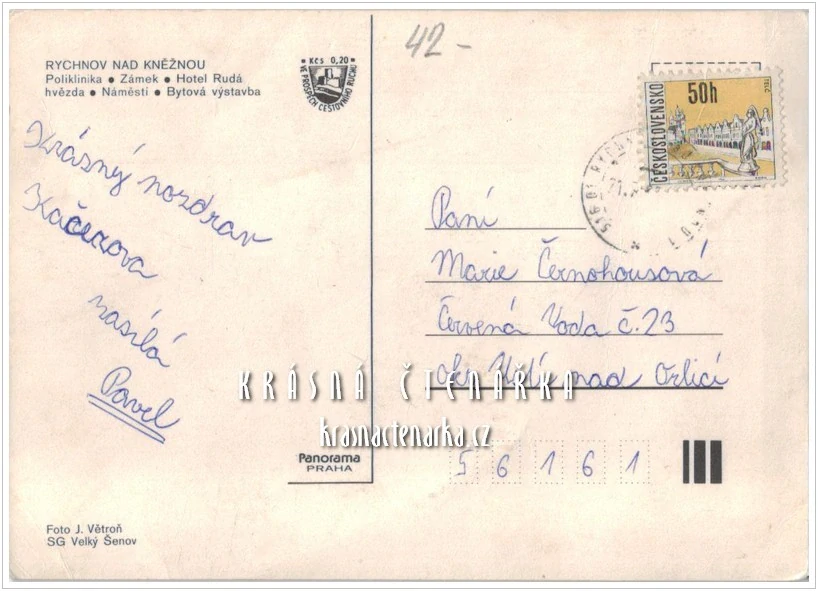 RYCHNOV NAD KNĚŽNOU
Poliklinika • Zámek • Hotel Rudá
hvězda • Náměstí • Bytová výstavba
Kčs 0,20
VE PROSPĚCH CESTOVNÍHO RUCHU
42-
ČESKOSLOVENSKO
50h
TELČ
516 01 RYCHN
Krásný pozdrav
Kačerova
zasílá
Pavel
Paní
Marie Černohousová
Červená Voda č. 23
okr. Ústí nad Orlicí
KRÁSNÁ ČTENÁŘKA
krasnactenarka.cz
56161
Panorama
PRAHA
Foto J. Větroň
SG Velký Šenov